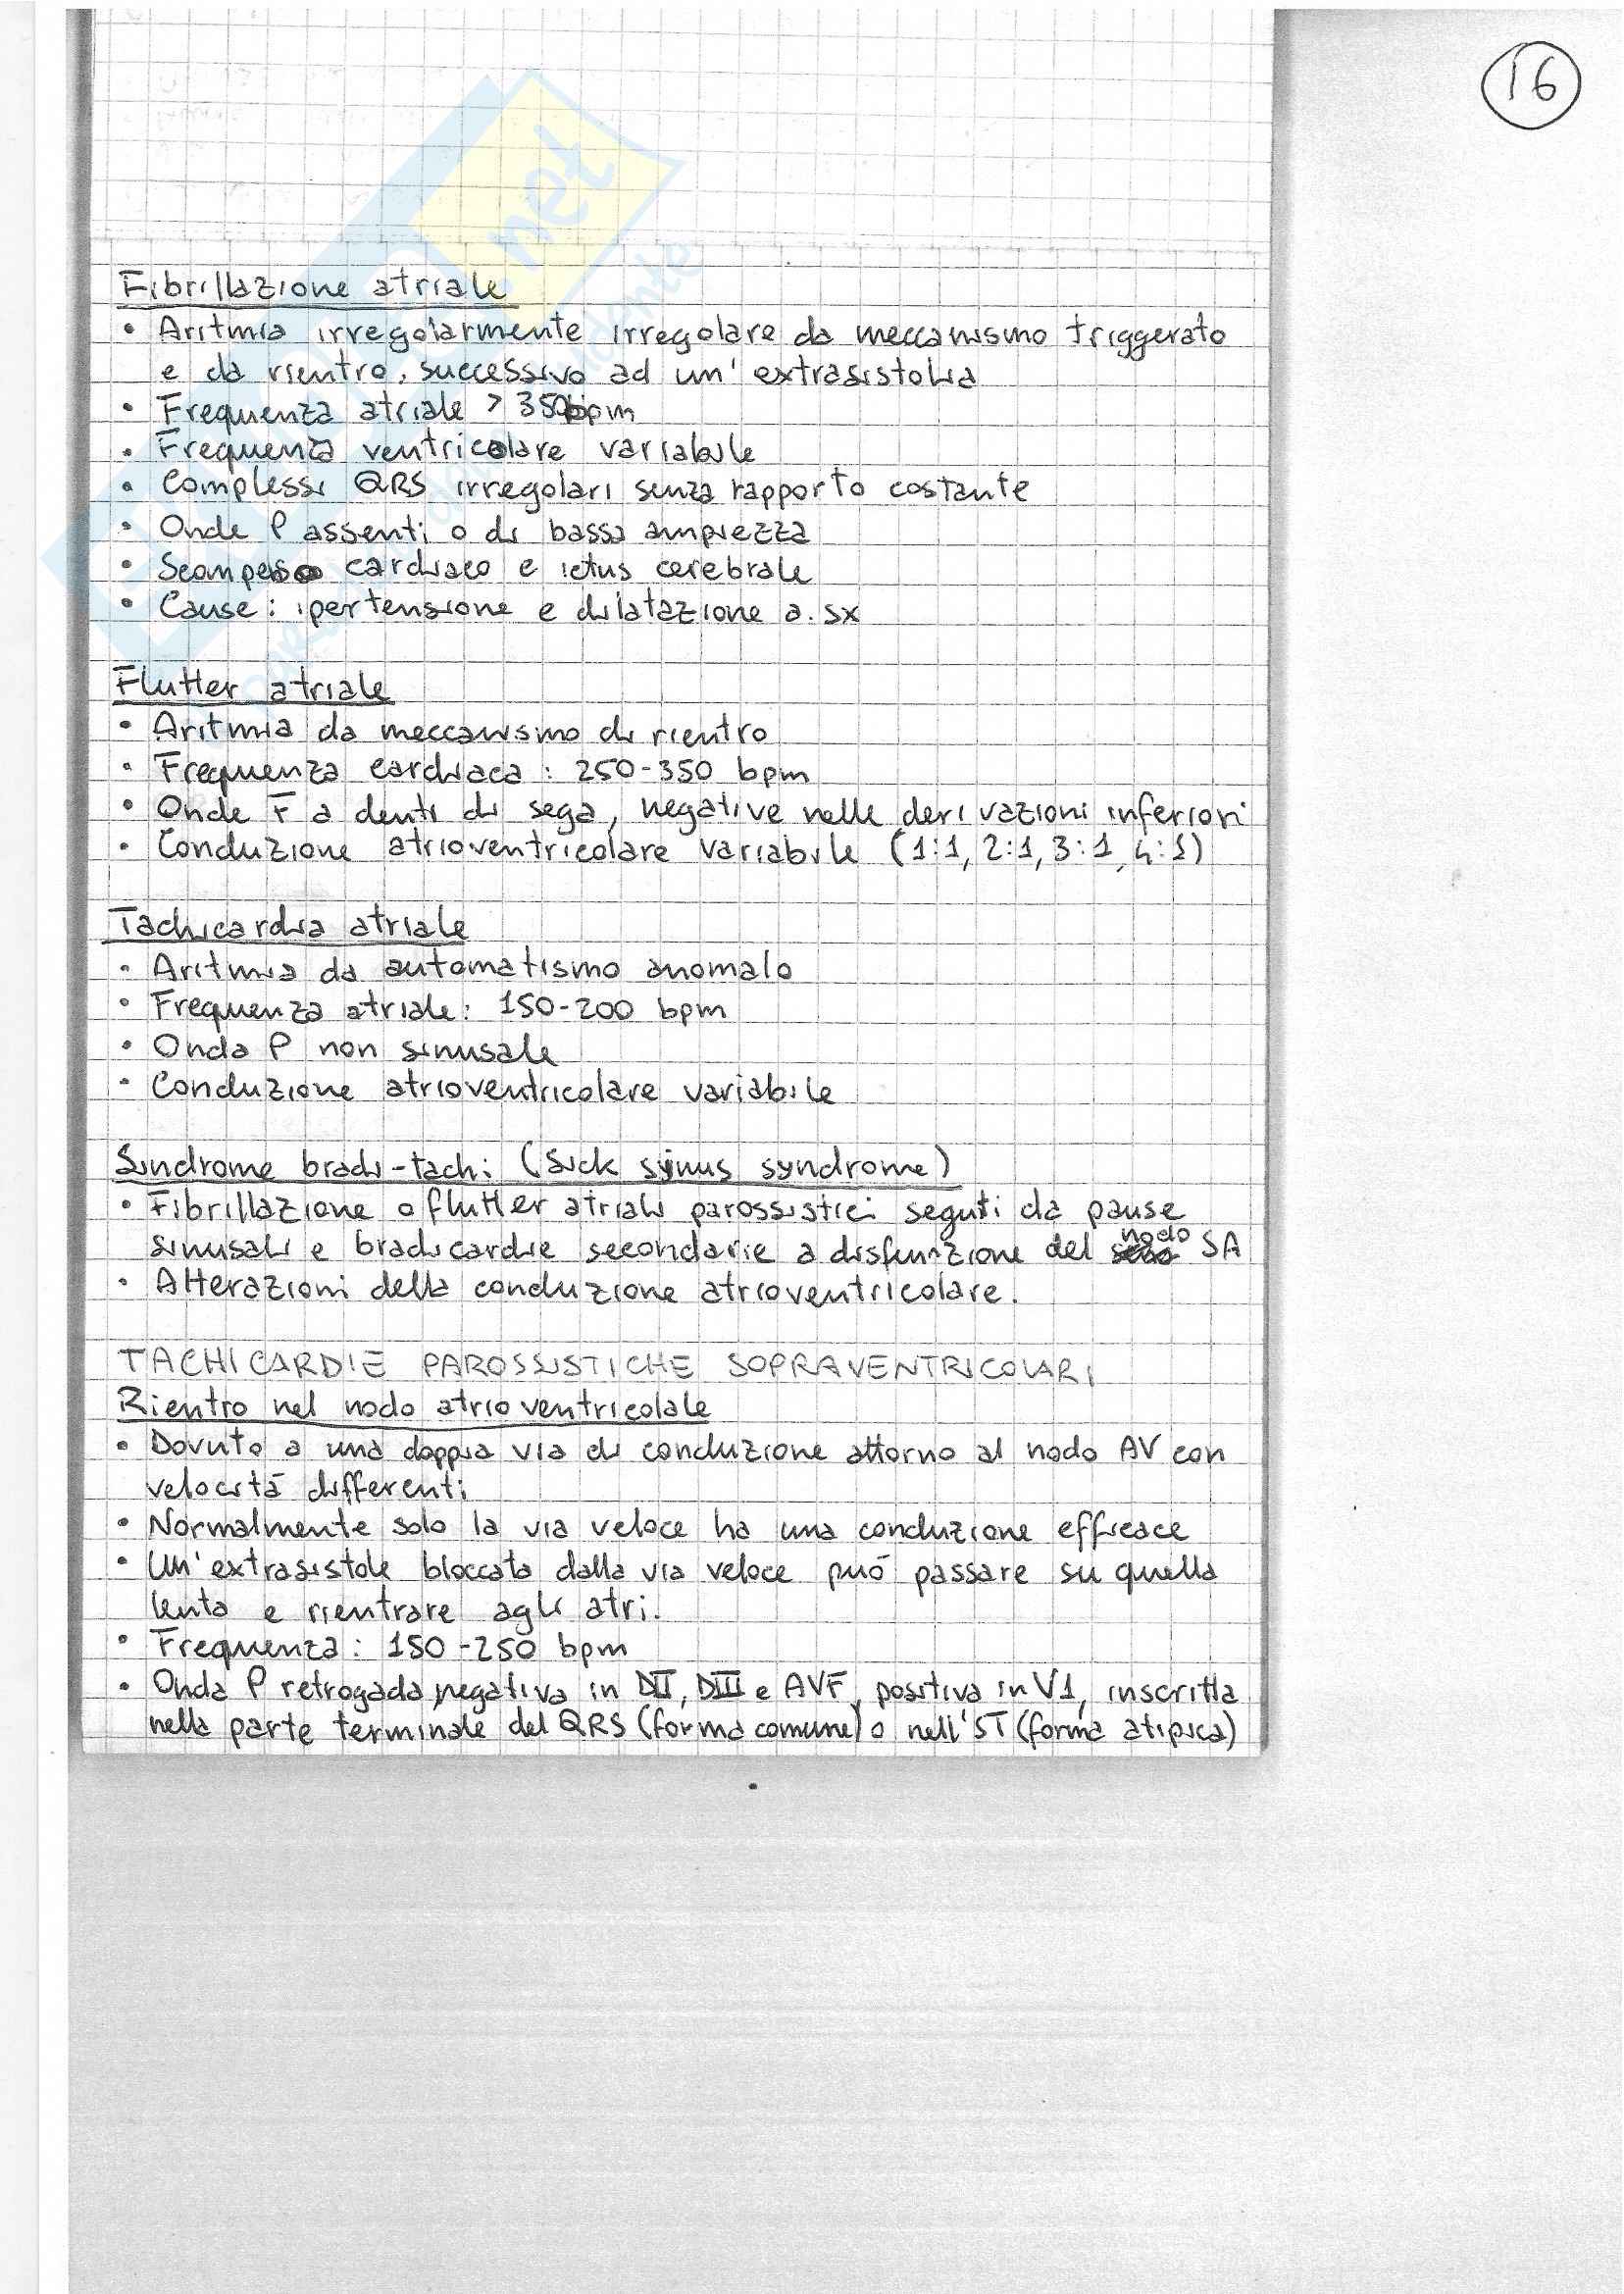 16
Fibrillazione atriale
• Aritmia irregolarmente irregolare da meccanismo triggerato
e da rientro, successivo ad un' extrasistolia
• Frequenza atriale > 350 bpm
• Frequenza ventricolare variabile
• Complessi QRS irregolari senza rapporto costante
• Onde P assenti o di bassa ampiezza
• Scompenso cardiaco e ictus cerebrale
• Cause: ipertensione e dilatazione a. sx
Flutter atriale
• Aritmia da meccanismo di rientro
• Frequenza cardiaca : 250-350 bpm
• Onde F a denti di sega, negative nelle derivazioni inferiori
• Conduzione atrioventricolare variabile (1:1, 2:1, 3:1, 4:1)
Tachicardia atriale
• Aritmia da automatismo anomalo
• Frequenza atriale: 150-200 bpm
• Onda P non sinusale
• Conduzione atrioventricolare variabile
Sindrome bradi-tachi (Sick sinus syndrome)
• Fibrillazione o flutter atriali parossistici seguti da pause
sinusali e bradicardie secondarie a disfunzione del nodo SA
• Alterazioni della conduzione atrioventricolare.
TACHICARDIE PAROSSISTICHE SOPRAVENTRICOLARI
Rientro nel nodo atrioventricolale
• Dovuto a una doppia via di conduzione attorno al nodo AV con
velocità differenti
• Normalmente solo la via veloce ha una conduzione efficace
• Un'extrasistole bloccata dalla via veloce può passare su quella
lenta e rientrare agli atri.
• Frequenza: 150-250 bpm
• Onda P retrogada, negativa in DII, DIII e AVF, positiva in V1, inscritta
nella parte terminale del QRS (forma comune) o nell'ST (forma atipica)
net